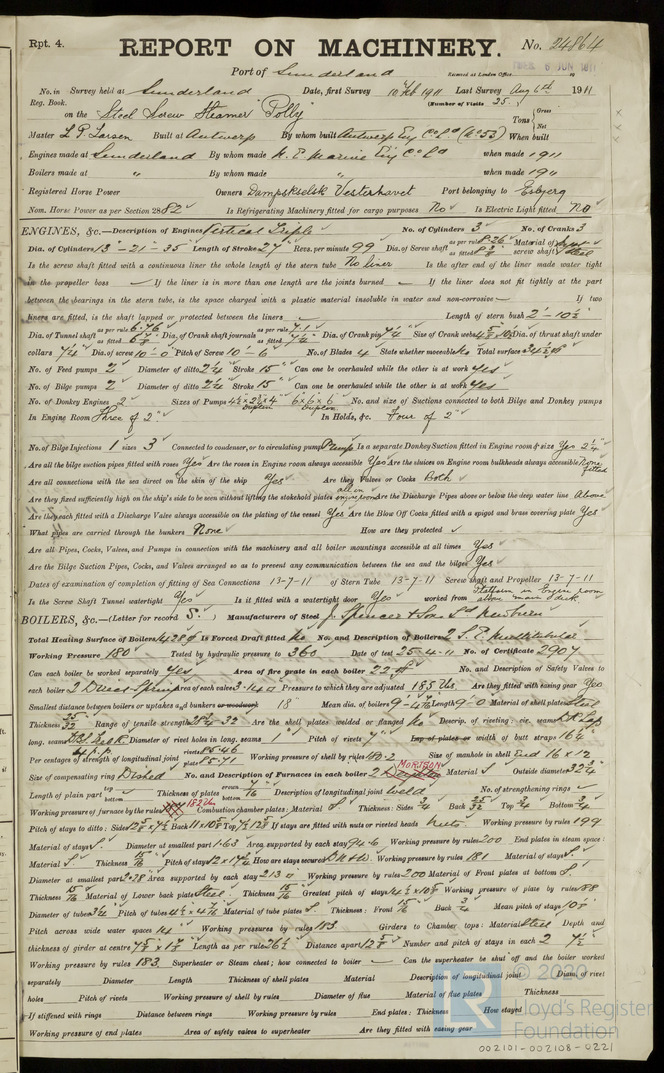 Rpt. 4.
REPORT ON MACHINERY. No. 24864
Port of Sunderland
Received at London Office
No. in Survey held at Sunderland Date, first Survey 10 Feb 1911 Last Survey Aug 6th 1911
Reg. Book. (Number of Visits 25)
on the Steel Screw Steamer "Polly" Tons Gross Net
Master L. P. Larsen Built at Antwerp By whom built Antwerp Eng Co Ld (No 53) When built
Engines made at Sunderland By whom made N. E. Marine Eng Co Ld when made 1911
Boilers made at " By whom made " when made 1911
Registered Horse Power Owners Dampskselsk Vesterhavet Port belonging to Esbjerg
Nom. Horse Power as per Section 28 82 Is Refrigerating Machinery fitted for cargo purposes No Is Electric Light fitted No
ENGINES, &c.—Description of Engines Vertical Triple No. of Cylinders 3 No. of Cranks 3
Dia. of Cylinders 13"-21"-35" Length of Stroke 27" Revs. per minute 99 Dia. of Screw shaft as per rule 8.26 as fitted Material of screw shaft Steel
Is the screw shaft fitted with a continuous liner the whole length of the stern tube No liner Is the after end of the liner made water tight
in the propeller boss — If the liner is in more than one length are the joints burned — If the liner does not fit tightly at the part
between the bearings in the stern tube, is the space charged with a plastic material insoluble in water and non-corrosive — If two
liners are fitted, is the shaft lapped or protected between the liners — Length of stern bush 2'-10½"
Dia. of Tunnel shaft as per rule 6.76 as fitted 6⅞ Dia. of Crank shaft journals as per rule 7.1 as fitted 7¼ Dia. of Crank pin 7¼ Size of Crank webs Dia. of thrust shaft under
collars 7¼ Dia. of screw 10-0 Pitch of Screw 10-6 No. of Blades 4 State whether moveable No Total surface 34½
No. of Feed pumps 2 Diameter of ditto 2¼ Stroke 15" Can one be overhauled while the other is at work Yes
No. of Bilge pumps 2 Diameter of ditto 2¼ Stroke 15" Can one be overhauled while the other is at work Yes
No. of Donkey Engines 2 Sizes of Pumps 6x6x6 Duplex No. and size of Suctions connected to both Bilge and Donkey pumps
In Engine Room Three of 2" In Holds, &c. Four of 2"
No. of Bilge Injections 1 sizes 3 Connected to condenser, or to circulating pump Pump Is a separate Donkey Suction fitted in Engine room & size Yes 2¼
Are all the bilge suction pipes fitted with roses Yes Are the roses in Engine room always accessible Yes Are the sluices on Engine room bulkheads always accessible None fitted
Are all connections with the sea direct on the skin of the ship Yes Are they Valves or Cocks Both
Are they fixed sufficiently high on the ship's side to be seen without lifting the stokehold plates all in engine room Are the Discharge Pipes above or below the deep water line Above
Are they each fitted with a Discharge Valve always accessible on the plating of the vessel Yes Are the Blow Off Cocks fitted with a spigot and brass covering plate Yes
What pipes are carried through the bunkers None How are they protected
Are all Pipes, Cocks, Valves, and Pumps in connection with the machinery and all boiler mountings accessible at all times Yes
Are the Bilge Suction Pipes, Cocks, and Valves arranged so as to prevent any communication between the sea and the bilges Yes
Dates of examination of completion of fitting of Sea Connections 13-7-11 of Stern Tube 13-7-11 Screw shaft and Propeller 13-7-11
Is the Screw Shaft Tunnel watertight Yes Is it fitted with a watertight door Yes worked from Platform in Engine room above main deck
BOILERS, &c.—(Letter for record S.) Manufacturers of Steel J. Spencer & Sons Ld Newburn
Total Heating Surface of Boilers Is Forced Draft fitted No No. and Description of Boilers 2 S. E. Multitubular
Working Pressure 180 Tested by hydraulic pressure to 360 Date of test 25-4-11 No. of Certificate 2907
Can each boiler be worked separately Yes Area of fire grate in each boiler 22 No. and Description of Safety Valves to
each boiler 2 Direct Spring Area of each valve 3.14 Pressure to which they are adjusted 185 lbs. Are they fitted with easing gear Yes
Smallest distance between boilers or uptakes and bunkers or woodwork 18" Mean dia. of boilers Length 9'-0" Material of shell plates Steel
Thickness 25/32 Range of tensile strength 28¼-32 Are the shell plates welded or flanged No Descrip. of riveting: cir. seams D.R. Lap
long. seams Diameter of rivet holes in long. seams Pitch of rivets 7" Lap of plates or width of butt straps 16½
Per centages of strength of longitudinal joint rivets 85.46 plate 85.71 Working pressure of shell by rules Size of manhole in shell End 16x12
Size of compensating ring Dished No. and Description of Furnaces in each boiler 2 MORISON Material S Outside diameter 32¾
Length of plain part top bottom Thickness of plates crown bottom Description of longitudinal joint Weld No. of strengthening rings
Working pressure of furnace by the rules 182 lbs Combustion chamber plates: Material S Thickness: Sides ¾ Back Top ¾ Bottom ¾
Pitch of stays to ditto: Sides Back Top If stays are fitted with nuts or riveted heads Nuts Working pressure by rules 199
Material of stays S Diameter at smallest part 1.63 Area supported by each stay 94.6 Working pressure by rules 200 End plates in steam space:
Material S Thickness Pitch of stays How are stays secured Working pressure by rules 181 Material of stays S
Diameter at smallest part 2.28 Area supported by each stay 213 Working pressure by rules 200 Material of Front plates at bottom S
Thickness 15/16 Material of Lower back plate Steel Thickness 15/16 Greatest pitch of stays Working pressure of plate by rules 188
Diameter of tubes 3¼ Pitch of tubes Material of tube plates S Thickness: Front 15/16 Back ¾ Mean pitch of stays
Pitch across wide water spaces 14" Working pressures by rules 183 Girders to Chamber tops: Material Steel Depth and
thickness of girder at centre Length as per rule 26½ Distance apart Number and pitch of stays in each 2 7½
Working pressure by rules 183 Superheater or Steam chest; how connected to boiler — Can the superheater be shut off and the boiler worked
separately Diameter Length Thickness of shell plates Material Description of longitudinal joint Diam. of rivet
holes Pitch of rivets Working pressure of shell by rules Diameter of flue Material of flue plates Thickness
If stiffened with rings Distance between rings Working pressure by rules End plates: Thickness How stayed
Working pressure of end plates Area of safety valves to superheater Are they fitted with easing gear
© 2020
Lloyd's Register
Foundation
002101-002108-0221